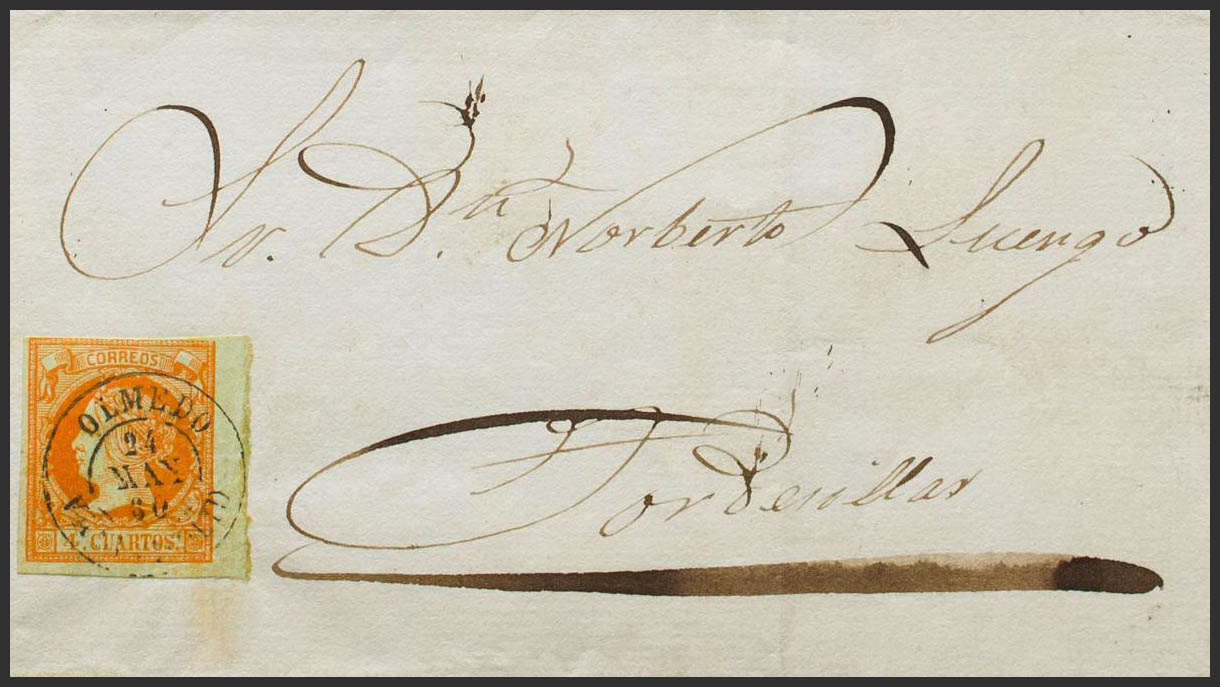 Sr. D.n Norberto Luengo
Tordesillas
CORREOS
OLMEDO
24
MAY
60
4 CUARTOS.